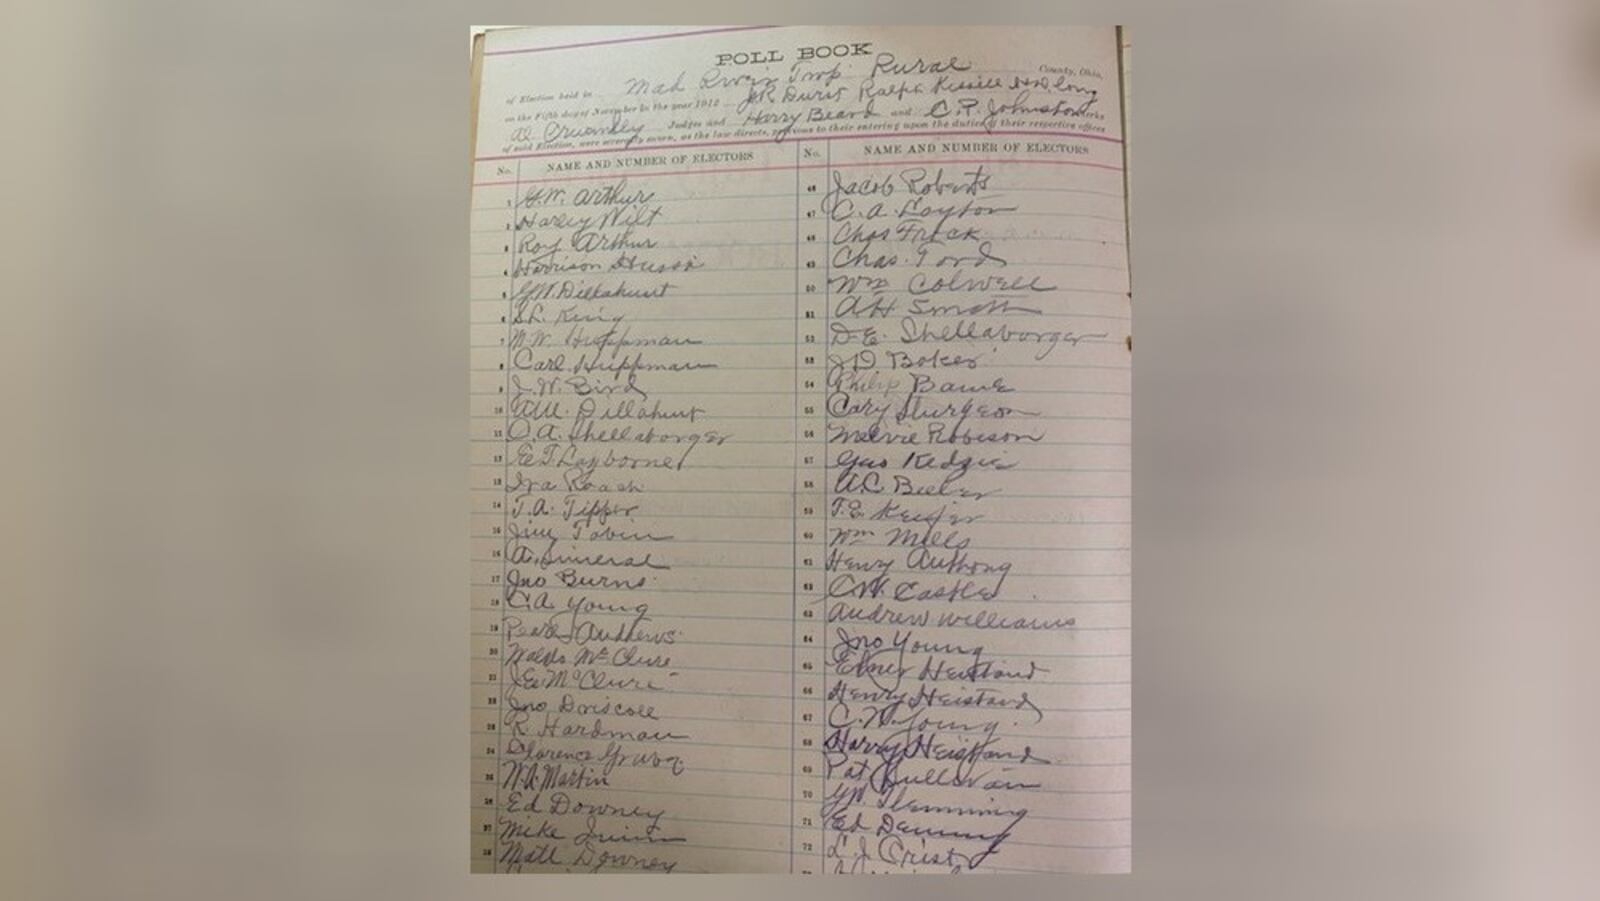 POLL BOOK
of Election held in Mad River Twp. Rural County, Ohio,
on the Fifth day of November in the year 1912 J.R. Durst Ralph Kissell
Al Crumley Judges and Harry Beard and C. P. Johnston Clerks
of said Election, were severally sworn, as the law directs, previous to their entering upon the duties of their respective offices
No. NAME AND NUMBER OF ELECTORS
1 G.W. Arthur
2 Harley Wilt
3 Roy Arthur
4 Harrison
5 G.W. Dillahunt
6 S.L. King
7 M.W. Huppman
8 Carl Huppman
9 J.W. Bird
10 Dillahunt
11 O.A. Shellaborger
12 E.T. Layborne
13 Ira Roach
14 T.A. Tipper
15 Jim Tobin
16 A. Simeral
17 Jno Burns
18 C.A. Young
19 Pearl Andrews
20 Waldo McClure
21 J.E. McClure
22 Jno Driscoll
23 R. Hardman
24 Clarence Grube
25 W.A. Martin
26 Ed Downey
27 Mike Quinn
28 Matt Downey
No. NAME AND NUMBER OF ELECTORS
46 Jacob Roberts
47 C.A. Layton
48 Chas Frock
49 Chas. Ford
50 Wm Colwell
51 A.H. Smith
52 D.E. Shellaborger
53 J.D. Boker
54 Philip
55 Cary Sturgeon
56 Melvie Robison
57 Geo Kedzie
58 A.C. Beeler
59 T.E. Keifer
60 Wm Mills
61 Henry Authong
62 C.W. Castle
63 Andrew Williams
64 Jno Young
65 Elmer Heistand
66 Henry Heistand
67 C.N. Young
68 Harry Heistand
69 Pat Sullivan
70 Flemming
71 Ed Deming
72 L.J. Crist